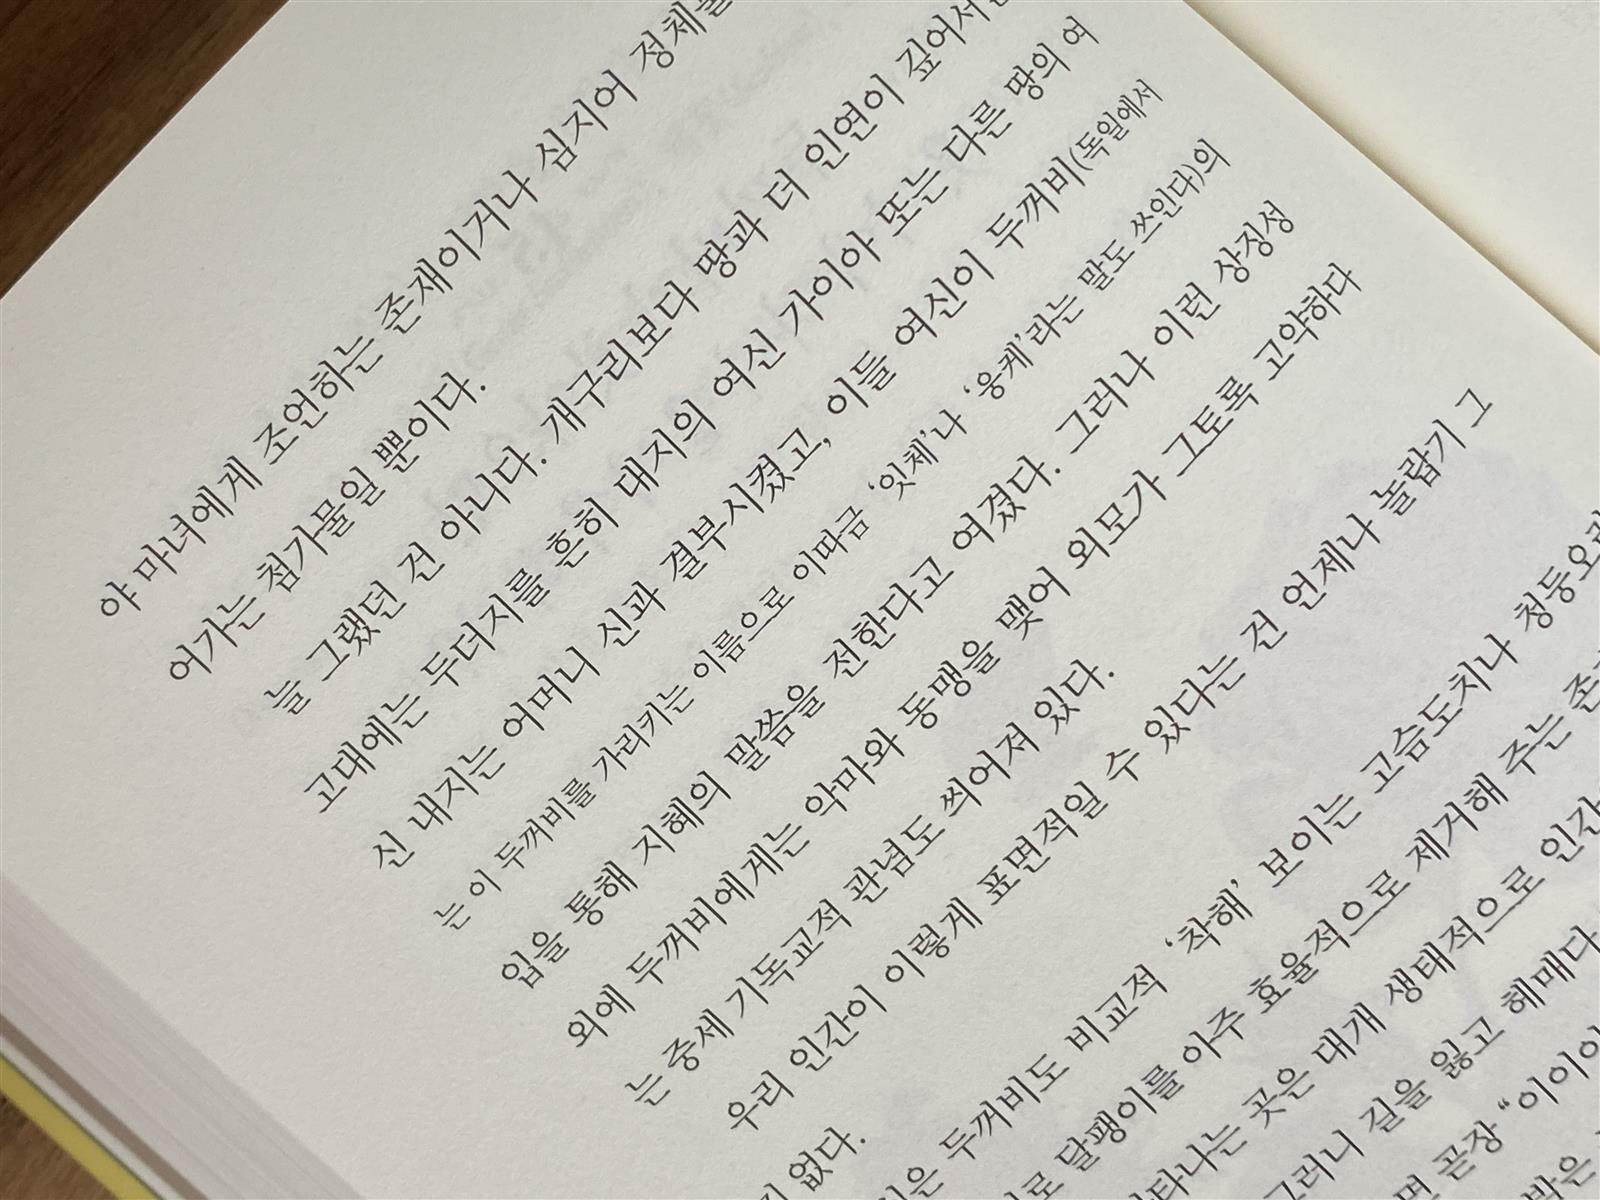 야 마녀에게 조언하는 존재이거나 심지어 정체를
어가는 첨가물일 뿐이다.
늘 그랬던 건 아니다. 개구리보다 땅과 더 인연이 깊어서
고대에는 두더지를 흔히 대지의 여신 가이아 또는 다른 땅의 여
신 내지는 어머니 신과 결부시켰고, 이들 여신이 두꺼비(독일에서
는 이 두꺼비를 가리키는 이름으로 이따금 ‘잇체’나 ‘웅케’라는 말도 쓰인다)의
입을 통해 지혜의 말씀을 전한다고 여겼다. 그러나 이런 상징성
외에 두꺼비에게는 악마와 동맹을 맺어 외모가 그토록 고약하다
는 중세 기독교적 관념도 씌어져 있다.
우리 인간이 이렇게 표면적일 수 있다는 건 언제나 놀랍기 그
없다.
은 두꺼비도 비교적 ‘착해’ 보이는 고슴도치나 청둥오리
로 달팽이를 아주 효율적으로 제거해 주는 존
타나는 곳은 대개 생태적으로 인간
그러니 길을 잃고 헤매다
면 곧장 “이이이